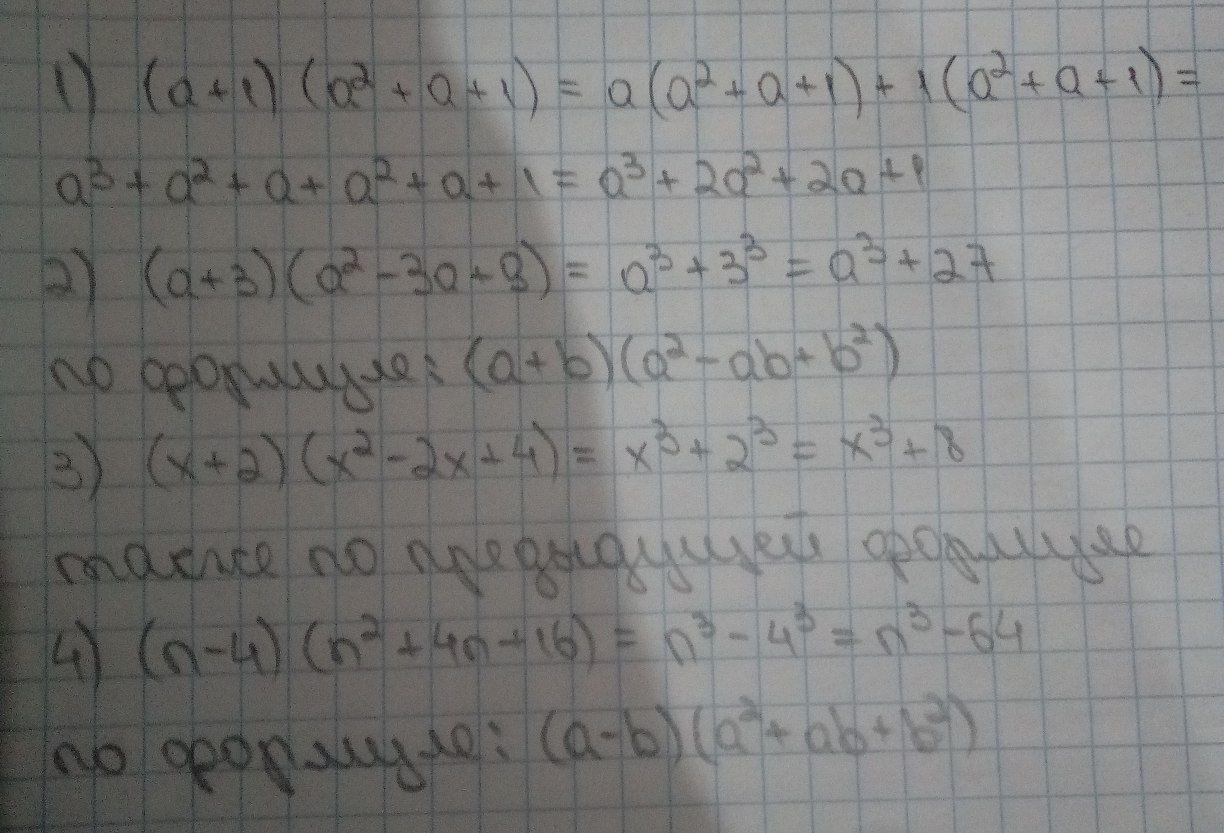 1) (a+1)(a²+a+1) = a(a²+a+1)+1(a²+a+1) =
a³+a²+a+a²+a+1 = a³+2a²+2a+1
2) (a+3)(a²-3a+9) = a³+3³ = a³+27
по формуле: (a+b)(a²-ab+b²)
3) (x+2)(x²-2x+4) = x³+2³ = x³+8
также по предыдущей формуле
4) (n-4)(n²+4n+16) = n³-4³ = n³-64
по формуле: (a-b)(a²+ab+b²)